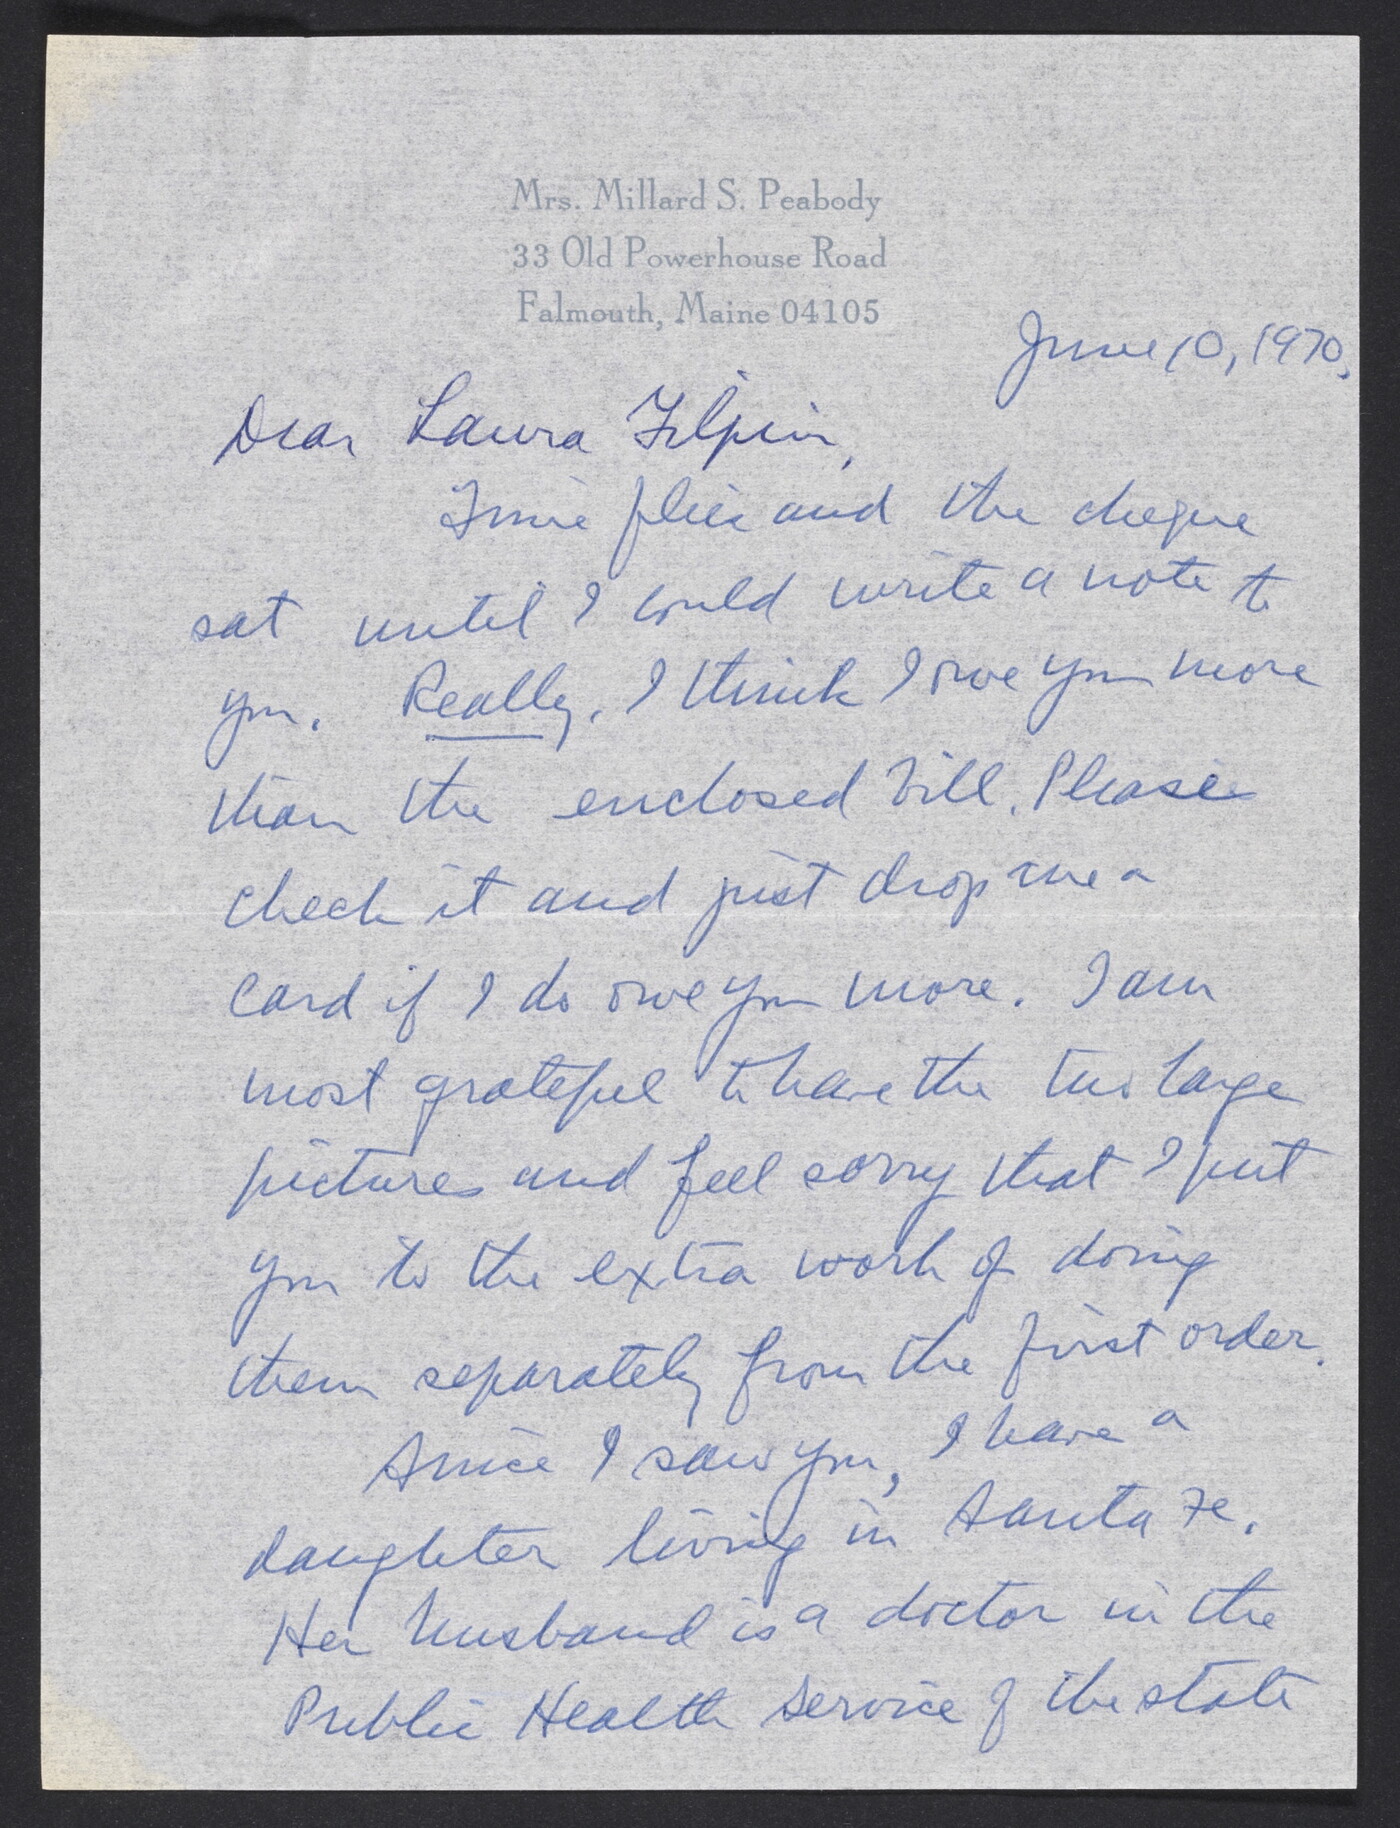 Mrs. Millard S. Peabody
33 Old Powerhouse Road
Falmouth, Maine 04105
June 10, 1970.
Dear Laura Filpin,
Time flies and the cheque
sat until I could write a note to
you. Really, I think I owe you more
than the enclosed bill. Please
check it and just drop me a
card if I do owe you more. I am
most grateful to have the two large
pictures and feel sorry that I put
you to the extra work of doing
them separately from the first order.
Since I saw you, I have a
daughter living in Santa Fe.
Her husband is a doctor in the
Public Health Service of the state